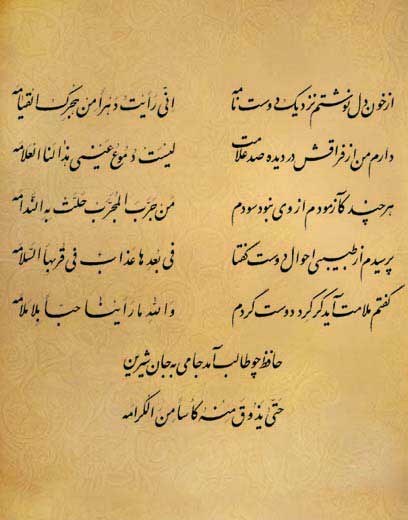 از خون دل نوشتم نزدیک دوست نامه انی رأیت دهرا من هجرک القیامه
دارم من از فراقش در دیده صد علامت لیست دموع عینی هذا لنا العلامه
هر چند کآزمودم از وی نبود سودم من جرب المجرب حلت به الندامه
پرسیدم از طبیبی احوال دوست گفتا فی بعدها عذاب فی قربها السلامه
گفتم ملامت آید گر گرد دوست گردم والله ما راینا حبا بلا ملامه
حافظ چو طالب آمد جامی به جان شیرین
حتی یذوق منه کاسا من الکرامه